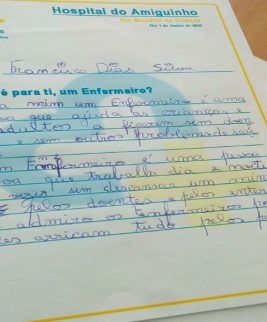 Hospital do Amiguinho
Dia Mundial da Criança
Dia 1 de Junho de 2020
Francisco Dias Silva
é para ti, um Enfermeiro?
a mim um Enfermeiro é uma
oa que ajuda as crianças
adultos a ficarem sem dor
e sem outros problemas de saú
m Enfermeiro é uma pessoa
oa que trabalha dia e noite
vezes sem descansar um min
pelos doentes e pelos inter
admiro os Enfermeiros po
les arriscam tudo pelos